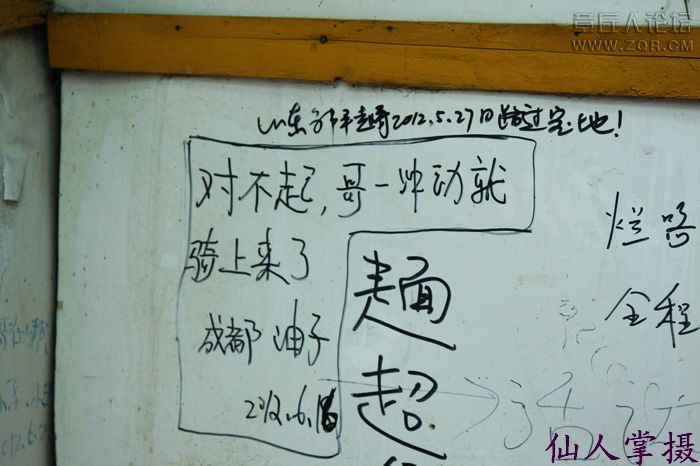 章丘人论坛
WWW.ZQR.CM
山东邹平赵哥2012.5.27日路过宝地!
对不起,哥一冲动就
骑上来了
成都油子
2012.6.18
麺
超
烂路
全程
仙人掌摄